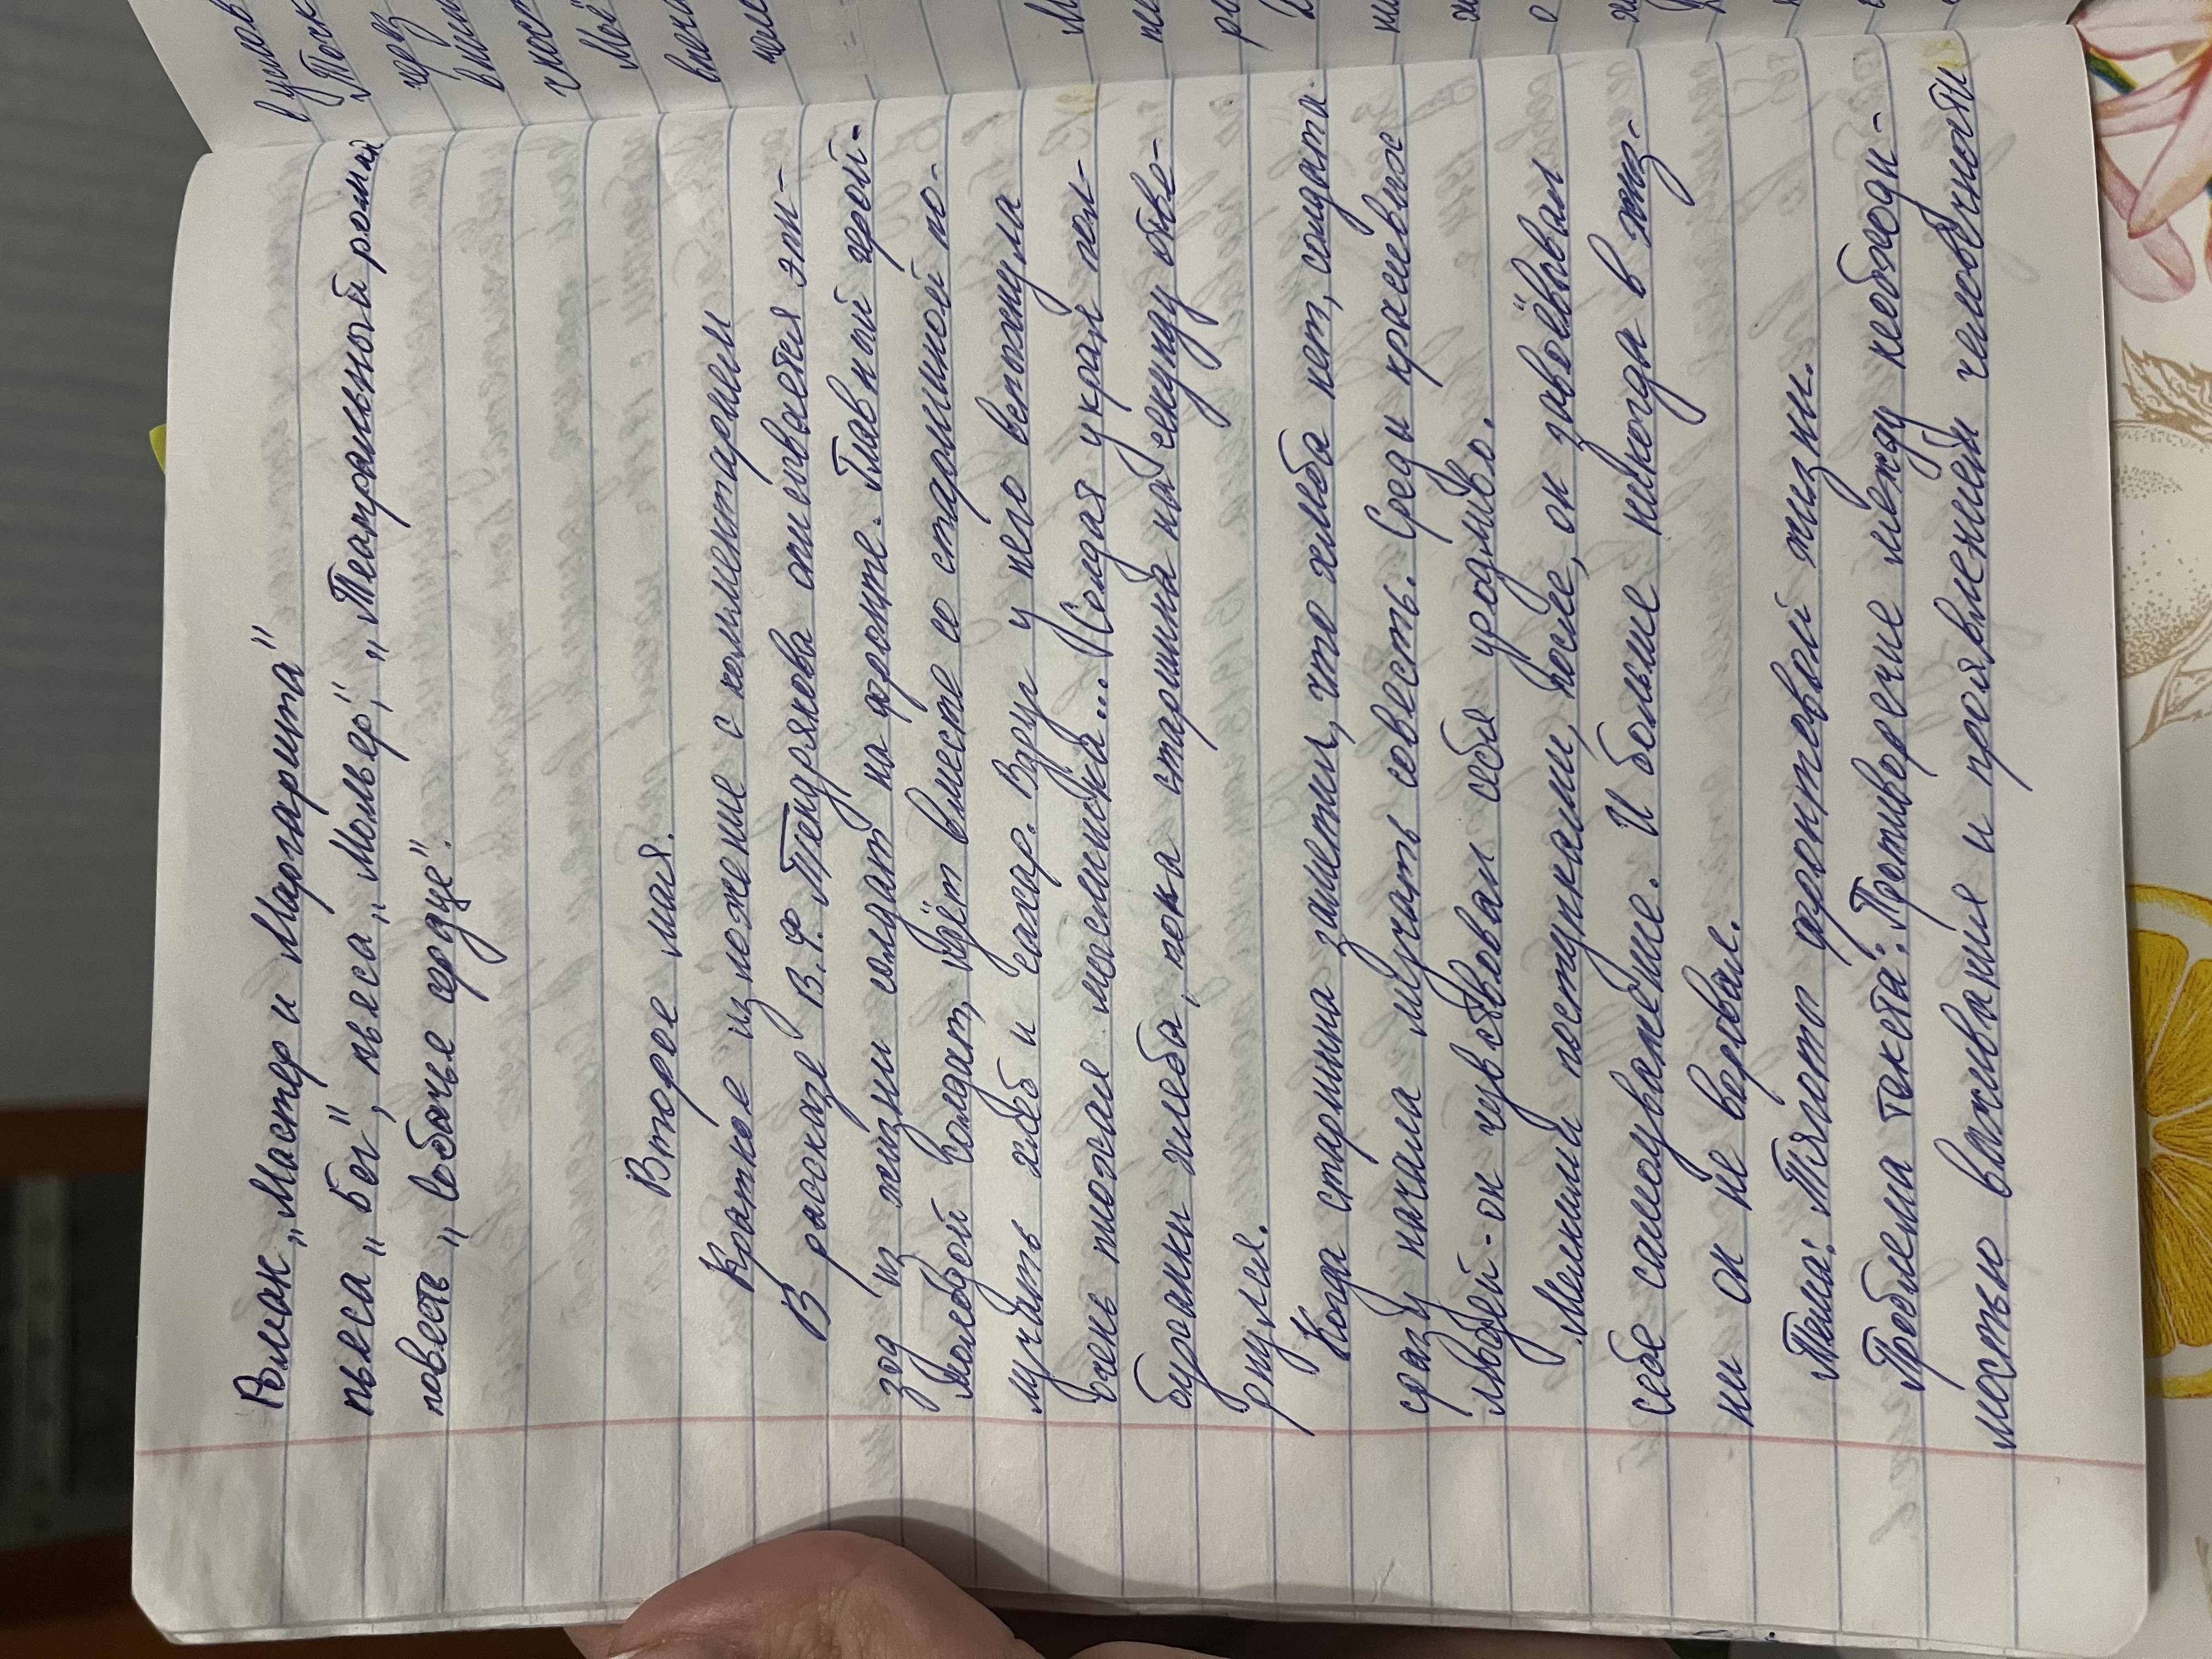 Роман „Мастер и Маргарита"
пьеса „Бег", пьеса „Мольер", „Театральный роман
повесть „Собачье сердце".
Второе мая.
Краткое изложение с комментарием
В рассказе В.Ф. Тендрякова описывается эпи-
зод из жизни солдат на фронте. Главный герой-
молодой солдат, идёт вместе со старшиной по-
лучать хлеб и сахар. Вдруг у него вспыхнула
очень плохая мыслишка... (Седая украл пол-
буханки хлеба, пока старшина на секунду отве-
рнулся.
Когда старшина заметил, что хлеба нет, солдата
сразу начала мучать совесть. Среди красивых
людей - он чувствовал себя уродливо.
Мелкими поступками, после, он завоёвывал
себе самоуважение. И больше никогда в жиз-
ни он не воровал.
Тема: Тяготы фронтовой жизни.
Проблема такова: Противоречие между необходи-
мостью выживания и проявлением человечности